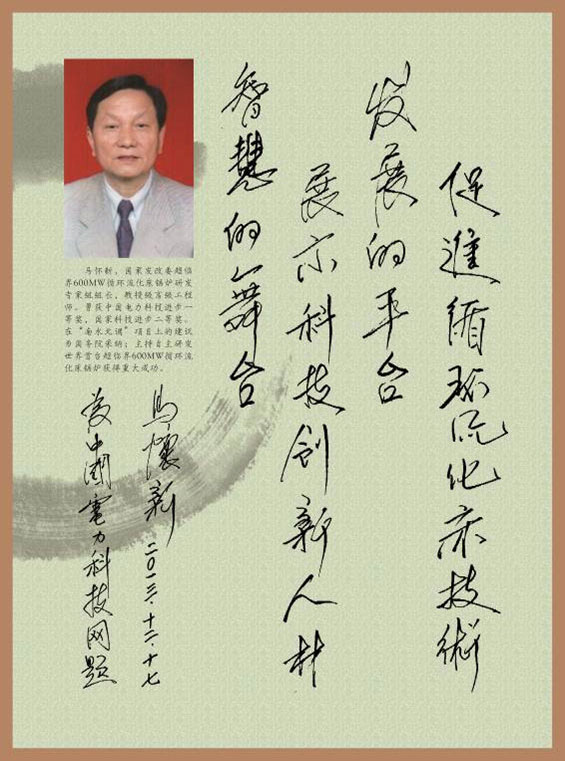 促進循环流化床技術
发展的平台
展示科技创新人材
智慧的舞台
马怀新，国家发改委超临
界600MW循环流化床锅炉研发
专家组组长，教授级高级工程
师。曾获中国电力科技进步一
等奖，国家科技进步二等奖。
在“南水北调”项目上的建议
为国务院采纳；主持自主研发
世界首台超临界600MW循环流
化床锅炉获得重大成功。
馬懷新 二〇一三.十二.十七
为中國電力科技网题